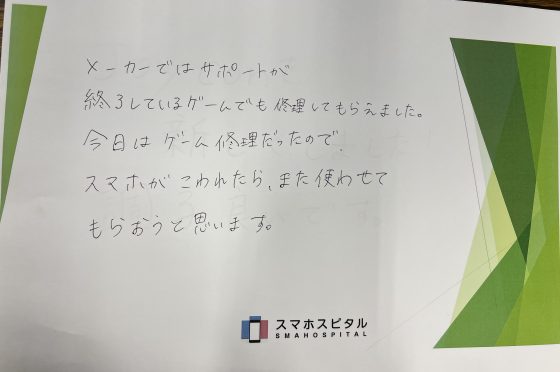 メーカーではサポートが
終了しているゲームでも修理してもらえました。
今日はゲーム修理だったので、
スマホがこわれたら、また使わせて
もらおうと思います。
スマホスピタル
SMAHOSPITAL